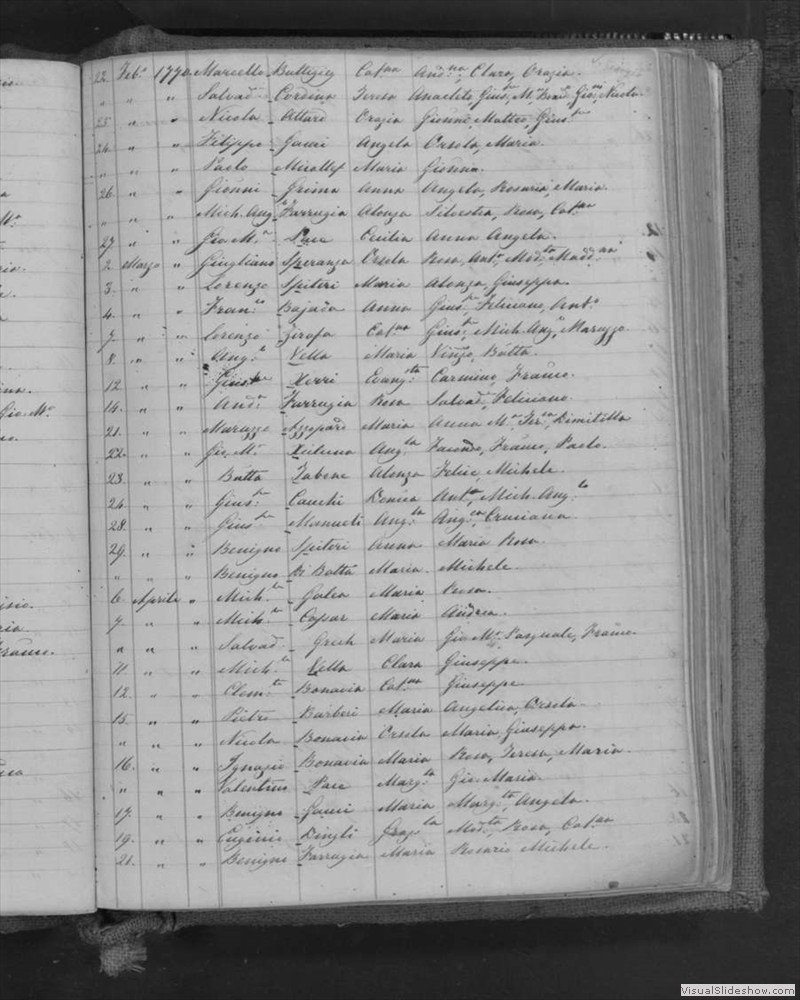 22. Feb.o 1770 Marcello Buttigieg Cat.na And.na, Clara, Orazia.
" " " Salvad. Cordina Teresa Anacleto, Gius.e, M.a, Gio, Nicola
25. " " Nicola Attard Orazia Gionni, Matteo, Gius.e
26. " " Filippo Gauci Angela Orsola, Maria.
" " " Paolo Micallef Maria Gionna.
26. " " Gionni Grima Anna Angela, Rosaria, Maria.
" " " Mich. Ang.o Farrugia Alonza Silvestra, Rosa, Cat.na
27. " " Gio M.a Pace Cecilia Anna Angela.
2. Marzo " Giugliano Speranza Orsola Rosa, Ant.a, Mod.ta, Madd.na
3. " " Lorenzo Spiteri Maria Alonza, Giuseppa.
4. " " Fran.co Bajada Anna Gius.e, Feliciano, Ant.o
7. " " Lorenzo Zirafa Cat.na Gius.e, Mich. Ang.o, Maruzzo.
8. " " Ang.o Vella Maria Vinzo, Batta.
12. " " Gius.e Xerri Evang.sta Carmino, Franco.
14. " " And.a Farrugia Rosa Salvad., Feliciano.
21. " " Maruzzo Azzopard Maria Anna M.a, Ter.sa, Dimitilla
22. " " Gio. M.a Xicluna Ang.la Facondo, Franco, Paolo.
23. " " Batta Tabone Alonza Felice, Michele.
24. " " Gius.e Cauchi Domica Ant.a, Mich. Ang.lo
28. " " Gius.e Mamueli Ang.la Ang.ca, Cruciana
29. " " Benigno Spiteri Anna Maria Rosa.
" " " Benigno Di Batta Maria. Michele.
6. Aprile " Mich.le Galea Maria Rosa.
7. " " Mich.le Caspar Maria Andrea.
" " " Salvad. Grech Maria Gio M.a, Pasquale, Franco.
11. " " Mich.le Vella Clara Giuseppe.
12. " " Clem.te Bonavia Cat.na Giuseppe
15. " " Pietro Barberi Maria Angelica, Orsola.
" " " Nicola Bonavia Orsola Maria, Giuseppa.
16. " " Ignazio Bonavia Maria Rosa, Teresa, Maria.
" " " Valentino Pace Marg.ta Gio. Maria.
17. " " Benigno Gauci Maria Marg.ta, Angela.
19. " " Eugenio Dingli Graz.la Mod.ta, Rosa, Cat.na
21. " " Benigno Farrugia Maria Rosario Michele.
VisualSlideshow.com